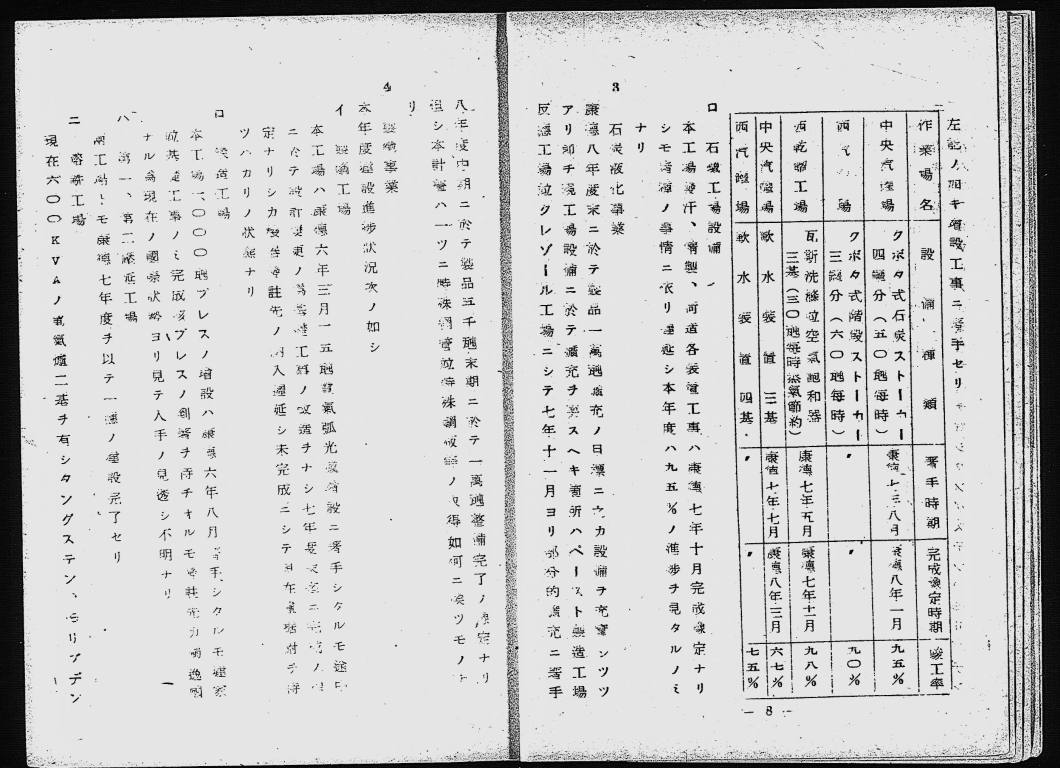 左記ノ如キ増設工事ニ着手セリ
作業場名 設備種類 着手時期 完成予定時期 竣工率
中央汽罐場 クボタ式石炭ストーカー 四罐分(五〇瓲毎時) 八月 康德八年一月 九五%
西汽罐場 クボタ式階段ストーカー 三罐分(六〇瓲毎時) 〃 〃 九〇%
西乾溜工場 瓦斯洗滌竝空氣飽和器 三基(三〇瓲毎時蒸氣節約) 康德七年五月 康德七年十二月 九八%
中央汽罐場 軟水裝置 三基 康德七年七月 康德八年三月 六七%
西汽罐場 軟水裝置 四基 〃 〃 七五%
— 8 —
ロ 石蠟工場設備
本工場發汗、精製、両道各裝置工事ハ康德七年十月完成豫定ナリ
シモ諸種ノ事情ニ依リ遲延シ本年度ハ九五%ノ進渉ヲ見タルノミ
ナリ
3 石炭液化事業
康德八年度末ニ於テ製品一萬瓲擴充ノ日標ニ向カ設備ヲ充實シツツ
アリ即チ現工場設備ニ於テ擴充ヲ要スヘキ箇所ハペースト製造工場
反應工場竝クレゾール工場ニシテ七年十一月ヨリ部分的擴充ニ着手
八年度中期ニ於テ製品五千瓲末期ニ於テ一萬瓲整備完了ノ豫定ナリ
但シ本計畫ハ一ツニ特殊鋼管竝特殊鋼板等ノ取得如何ニ俟ツモノナ
リ
4 製鐵事業
本年度建設進渉狀況次ノ如シ
イ 製鋼工場
本工場ハ康德六年三月一五瓲電氣弧光爐增設ニ着手シタルモ途中
ニ於テ設計變更ノ爲 工事ノ改造ヲナシ七年度末迄ニ完成ノ豫
定ナリシカ 註先ノ納入遲延シ未完成ニシテ目在 付ヲ待
ツハカリノ狀態ナリ
ロ 鍛造工場
本工場一、〇〇〇瓲プレスノ增設ハ康德六年八月着手シタルモ建家
竝基礎工事ノミ完成該プレスノ到着ヲ待チオルモ 註先カ獨逸國
ナル爲現在ノ國際狀勢ヨリ見テ入手ノ見透シ不明ナリ
ハ 第一、第二壓延工場
兩工場トモ康德七年度ヲ以テ一應ノ建設完了セリ
ニ 特殊工場
現在六〇〇KVAノ電氣爐二基ヲ有シタングステン、モリブデン